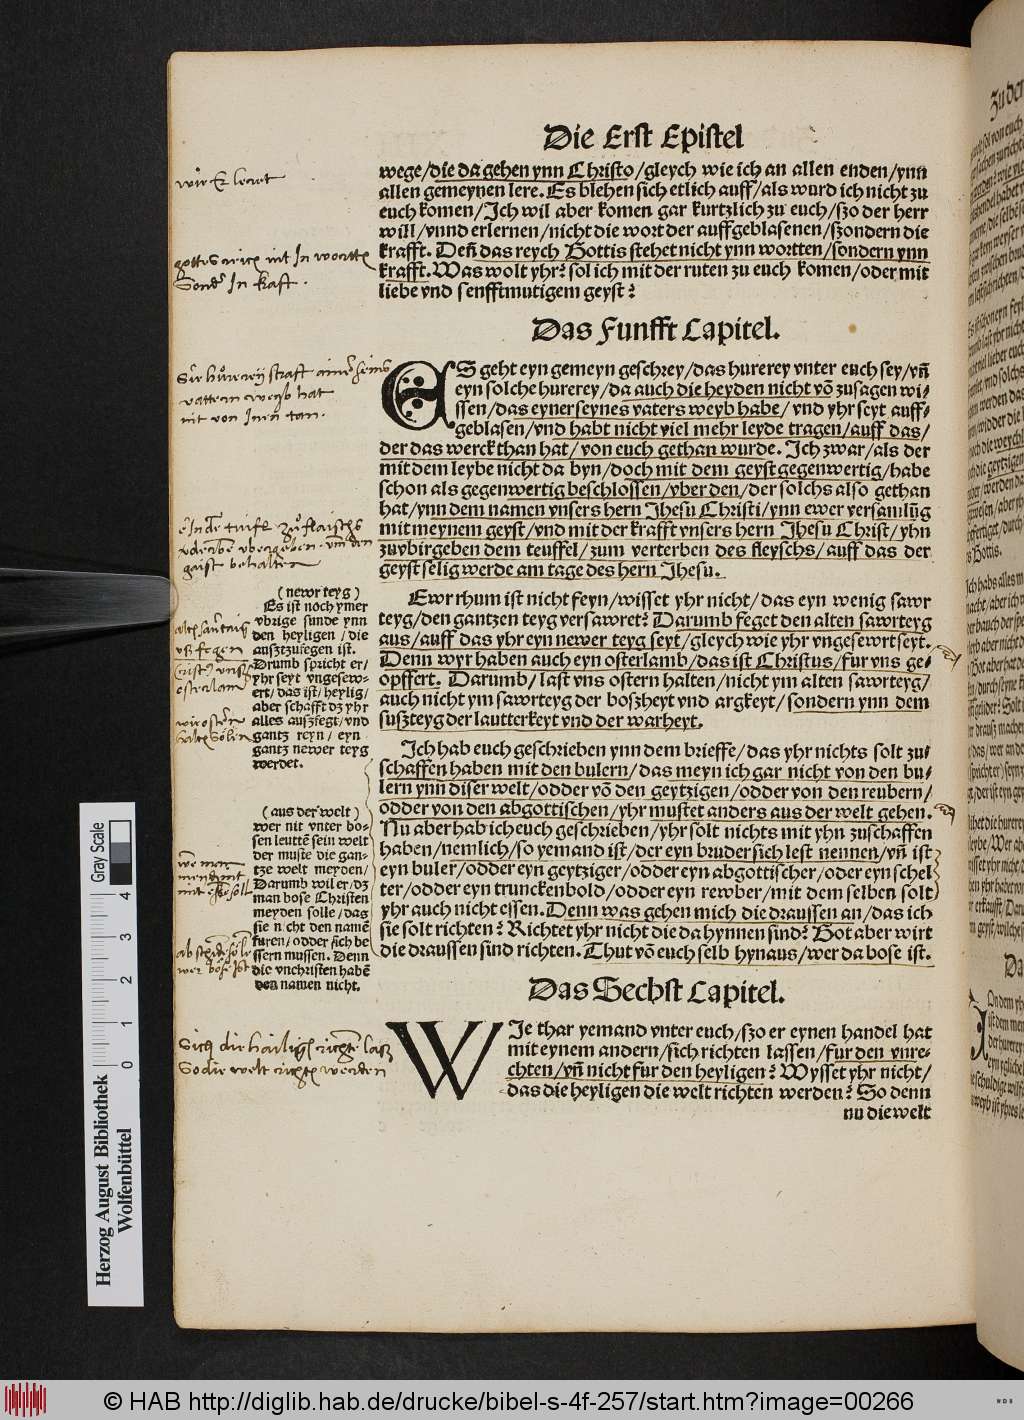 Die Erst Epistel
wege/die da gehen ynn Christo/gleych wie ich an allen enden/ynn
allen gemeynen lere. Es blehen sich etlich auff/als wurd ich nicht zu
euch komen/Ich wil aber komen gar kurtzlich zu euch/szo der herr
will/vnnd erlernen/nicht die wort der auffgeblasenen/szondern die
krafft. Deñ das reych Gottis stehet nicht ynn wortten/sondern ynn
krafft. Was wolt yhr? sol ich mit der ruten zu euch komen/oder mit
liebe vnd senfftmutigem geyst?
Das Funfft Capitel.
ES geht eyn gemeyn geschrey/das hurerey vnter euch sey/vñ
eyn solche hurerey/da auch die heyden nicht võ zusagen wi-
ssen/das eyner seynes vaters weyb habe/vnd yhr seyt auff-
geblasen/vnd habt nicht viel mehr leyde tragen/auff das/
der das werck than hat/von euch gethan wurde. Ich zwar/als der
mit dem leybe nicht da byn/doch mit dem geyst gegenwertig/habe
schon als gegenwertig beschlossen/vber den/der solchs also gethan
hat/ynn dem namen vnsers hern Jhesu Christi/ynn ewer versamlũg
mit meynem geyst/vnd mit der krafft vnsers hern Jhesu Christ/yhn
zuvbirgeben dem teuffel/zum verterben des fleyschs/auff das der
geyst selig werde am tage des hern Jhesu.
Ewr rhum ist nicht feyn/wisset yhr nicht/das eyn wenig sawr
teyg/den gantzen teyg versawret? Darumb feget den alten sawrteyg
aus/auff das yhr eyn newer teyg seyt/gleych wie yhr vngesewrt seyt.
Denn wyr haben auch eyn osterlamb/das ist Christus/fur vns ge-
opffert. Darumb/last vns ostern halten/nicht ym alten sawrteyg/
auch nicht ym sawrteyg der boszheyt vnd argkeyt/sondern ynn dem
suszteyg der lautterkeyt vnd der warheyt.
Ich hab euch geschrieben ynn dem brieffe/das yhr nichts solt zu-
schaffen haben mit den bulern/das meyn ich gar nicht von den bu-
lern ynn diser welt/odder võ den geytzigen/odder von den reubern/
odder von den abgottischen/yhr mustet anders aus der welt gehen.
Nu aber hab ich euch geschrieben/yhr solt nichts mit yhn zuschaffen
haben/nemlich/so yemand ist/der eyn bruder sich lest nennen/vñ ist
eyn buler/odder eyn geytziger/odder eyn abgottischer/oder eyn schel
ter/odder eyn trunckenbold/odder eyn rewber/mit dem selben solt
yhr auch nicht essen. Denn was gehen mich die draussen an/das ich
sie solt richten? Richtet yhr nicht die da hynnen sind? Got aber wirt
die draussen sind richten. Thut võ euch selb hynaus/wer da bose ist.
Das Sechst Capitel.
WIe thar yemand vnter euch/szo er eynen handel hat
mit eynem andern/sich richten lassen/fur den vnre-
chten/vñ nicht fur den heyligen? Wysset yhr nicht/
das die heyligen die welt richten werden? So denn
nu die welt
(newr teyg)
Es ist noch ymer
vbrige sunde ynn
den heyligen/die
ausztzufegen ist.
Drumb spricht er/
yhr seyt vngesew-
ert/das ist/heylig/
aber schafft dz yhr
alles auszfegt/vnd
gantz reyn/eyn
gantz newer teyg
werdet.
(aus der welt)
wer nit vnter bo-
sen leuttẽ sein welt
der muste die gan-
tze welt meyden/
Darumb wil er/dz
man bose Christen
meyden solle/das
sie nicht den namẽ
furen/odder sich be
ssern mussen. Denn
die vnchristen habẽ
den namen nicht.
gottes reich nit In wortten
Sonder In kraft.
nit von Inen tan.
gaist behalten
Sich die hailigen richten lasz
So die welt richten werden
Zu den
Gray Scale
0 1 2 3 4
Herzog August Bibliothek
Wolfenbüttel
© HAB http://diglib.hab.de/drucke/bibel-s-4f-257/start.htm?image=00266